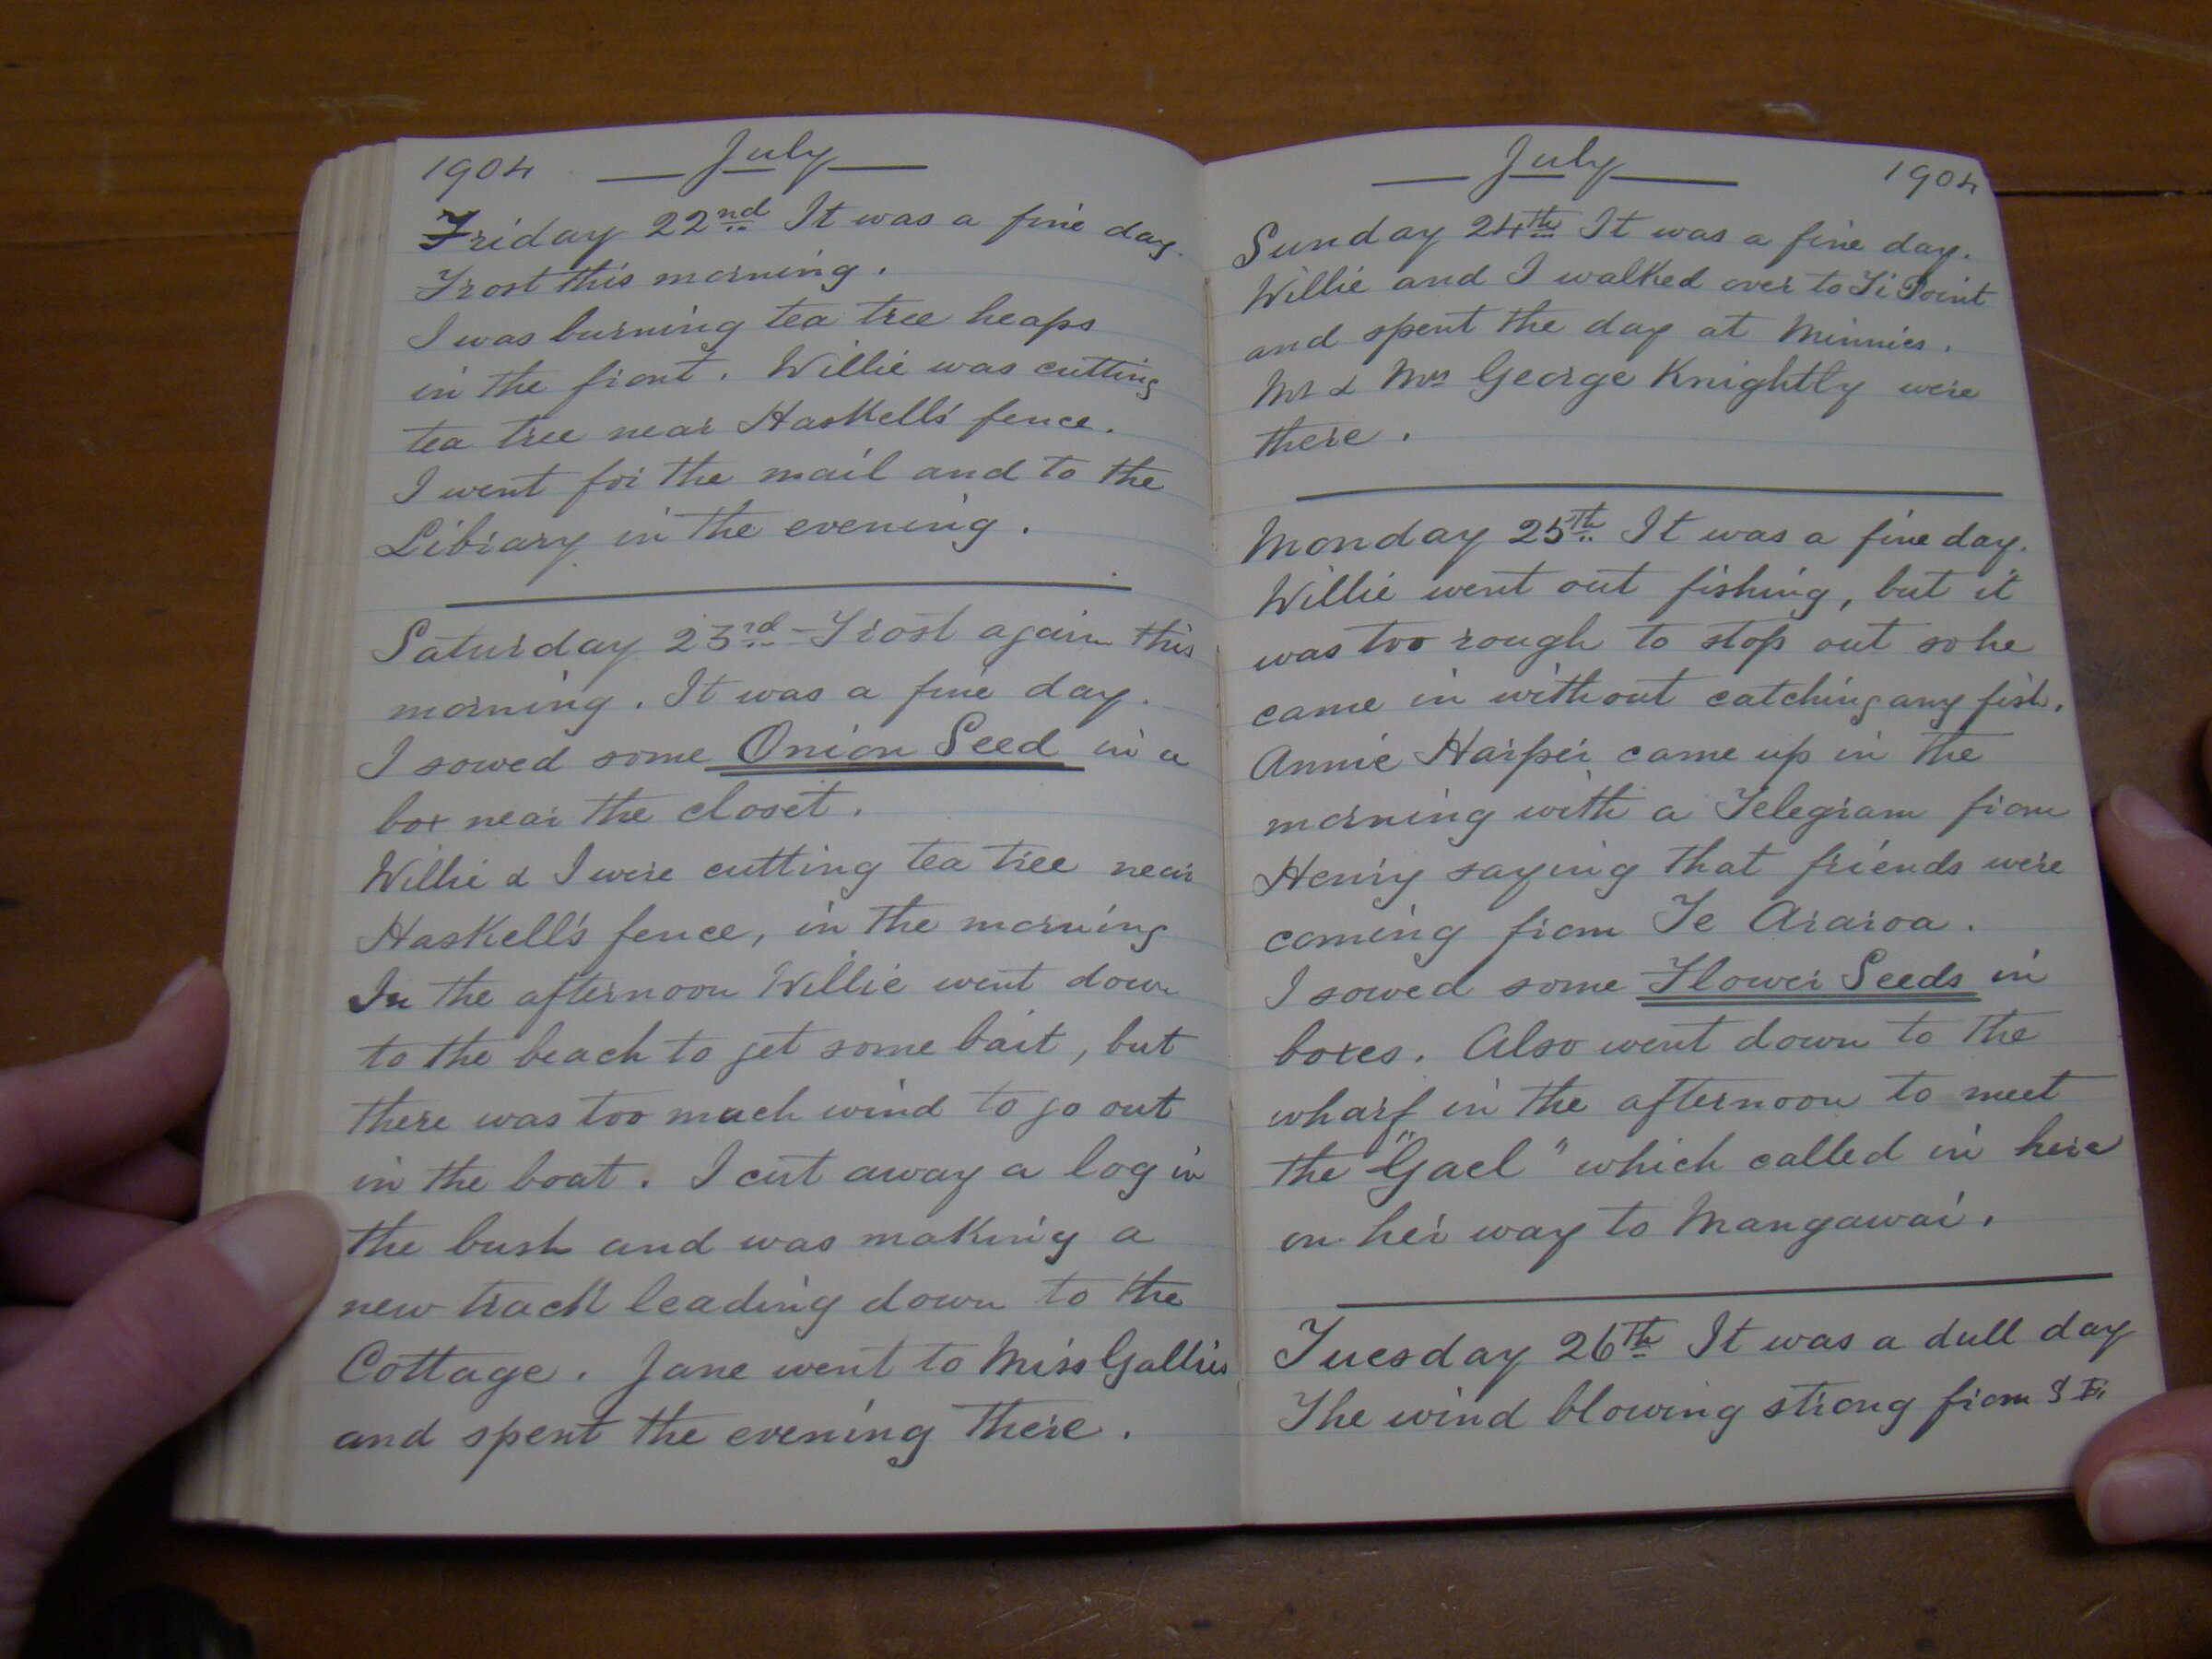 1904 July
Friday 22nd It was a fine day.
Frost this morning.
I was burning tea tree heaps
in the front. Willie was cutting
tea tree near Haskell's fence.
I went for the mail and to the
Library in the evening.
Saturday 23rd - Frost again this
morning. It was a fine day.
I sowed some Onion Seed in a
box near the closet.
Willie & I were cutting tea tree near
Haskell's fence, in the morning
In the afternoon Willie went down
to the beach to get some bait, but
there was too much wind to go out
in the boat. I cut away a log in
the bush and was making a
new track leading down to the
Cottage. Jane went to Miss Gallies
and spent the evening there.
July 1904
Sunday 24th It was a fine day.
Willie and I walked over to Ti Point
and spent the day at Minnies.
Mr & Mrs George Knightly were
there.
Monday 25th It was a fine day.
Willie went out fishing, but it
was too rough to stop out so he
came in without catching any fish.
Annie Harper came up in the
morning with a Telegram from
Henry saying that friends were
coming from Te Araroa.
I sowed some Flower Seeds in
boxes. Also went down to the
wharf in the afternoon to meet
the "Gael" which called in here
on her way to Mangawai.
Tuesday 26th It was a dull day
The wind blowing strong from S E